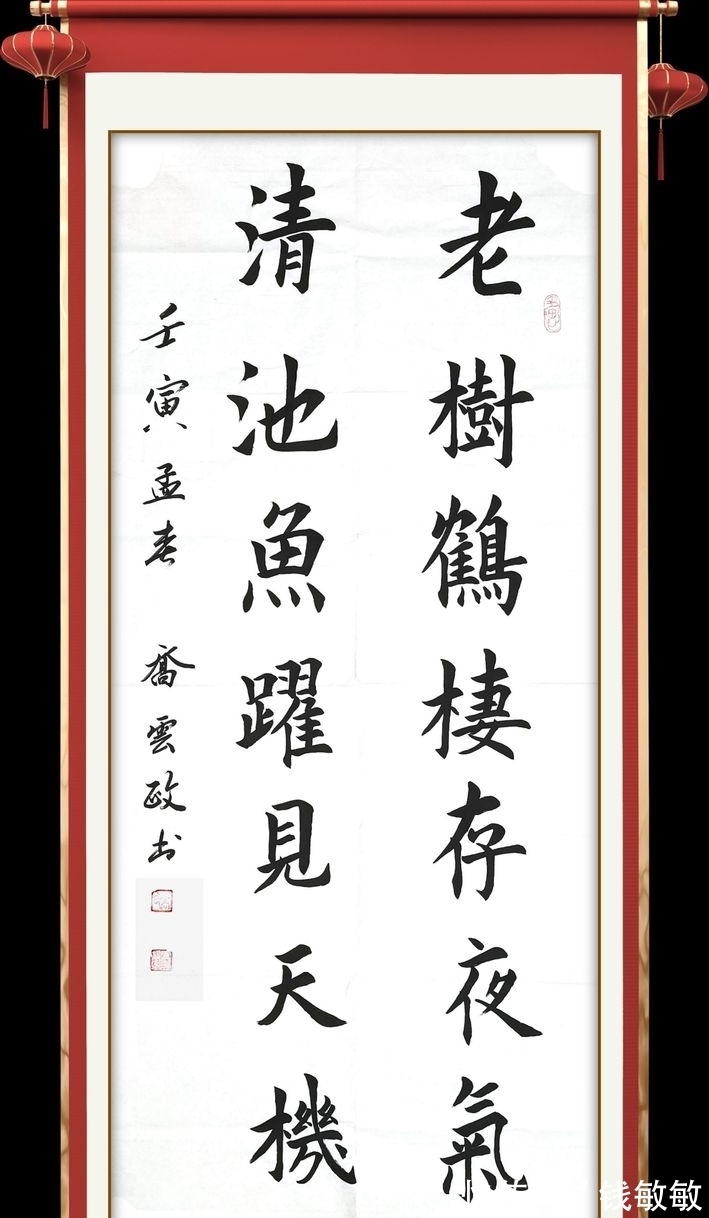 老樹鶴棲存夜氣
清池魚躍見天機
壬寅孟春 喬雲政书
钱敏敏